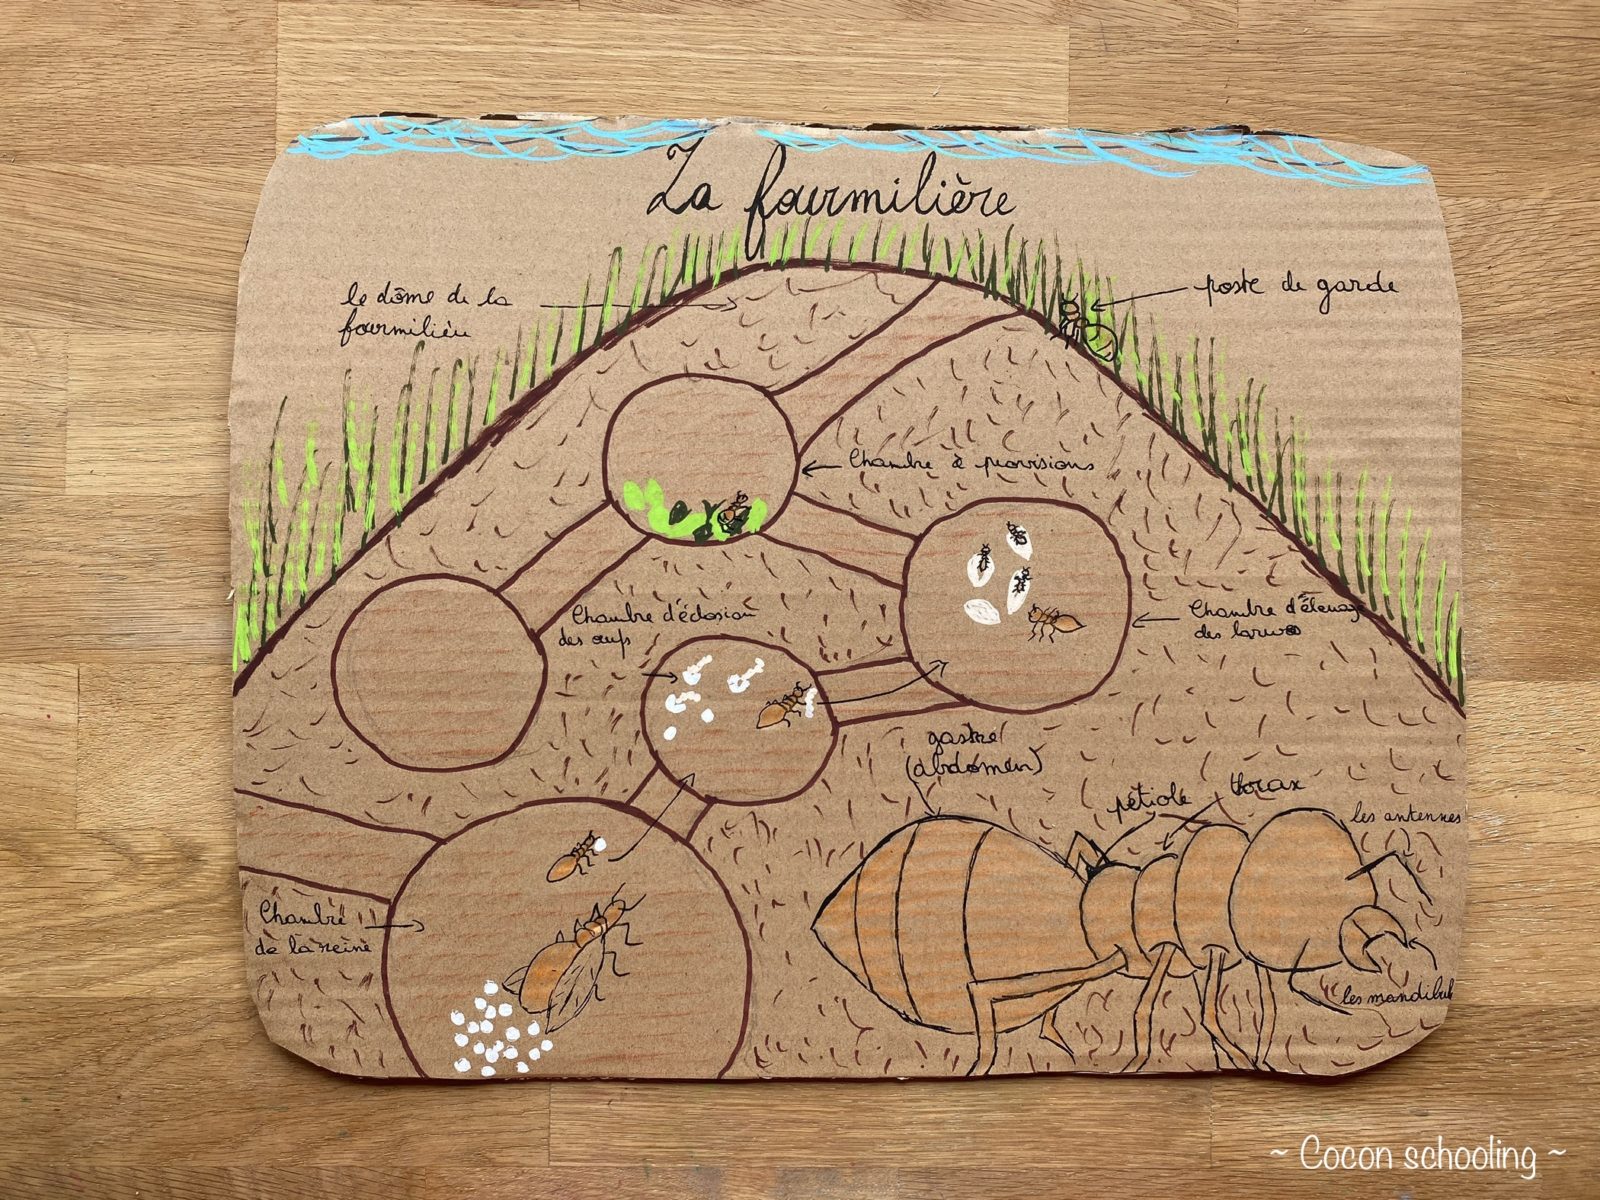 La fourmilière
le dôme de la
fourmilière
poste de garde
Chambre à provisions
Chambre d'éclosion
des œufs
Chambre d'élevage
des larves
gastre
(abdomen)
pétiole
thorax
les antennes
Chambre
de la reine
les mandibules
~ Cocon schooling ~